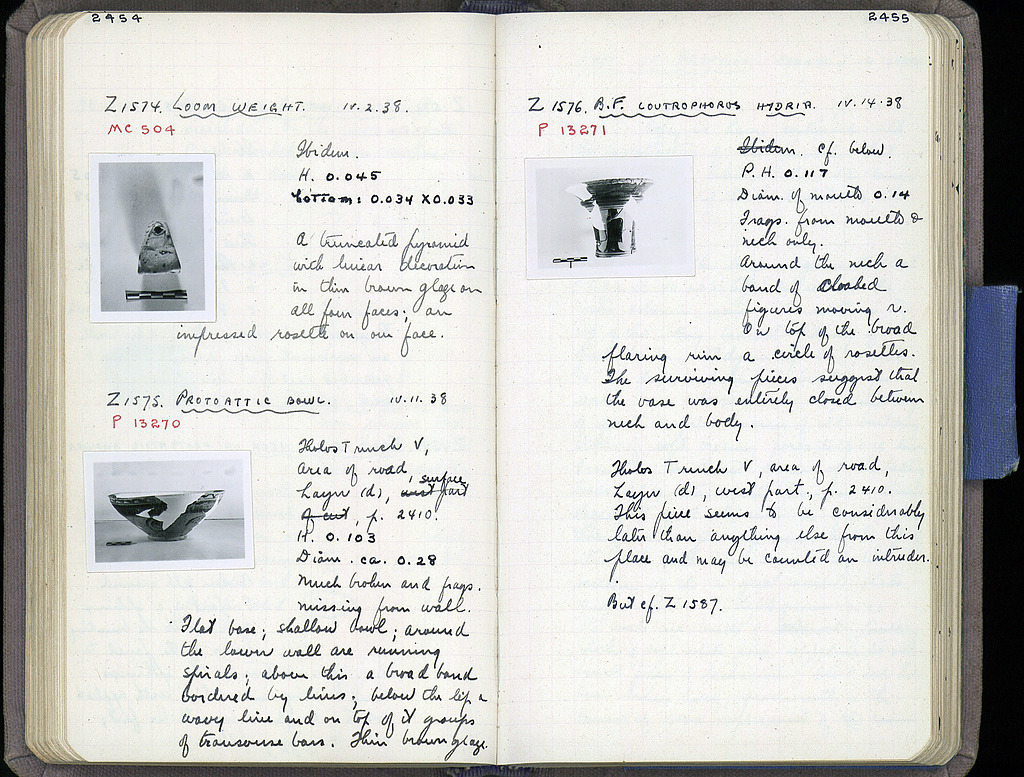 2454
Z 1574. LOOM WEIGHT. IV.2.38.
MC 504
Ibidem.
H. 0.045
Bottom: 0.034 X 0.033
A truncated pyramid
with linear decoration
in thin brown glaze on
all four faces; an
impressed rosette on one face.
Z 1575. PROTOATTIC BOWL. IV.11.38
P 13270
Tholos Trench V,
Area of road,
Layer (d), west part, surface
of cut, p. 2410.
H. 0.103
Diam. ca. 0.28
Much broken and frags.
missing from wall.
Flat base; shallow bowl; around
the lower wall are running
spirals; above this a broad band
bordered by lines; below the lip a
wavy line and on top of it groups
of transverse bars. Thin brown glaze.
2455
Z 1576. B.F. LOUTROPHOROS HYDRIA. IV.14.38
P 13271
Ibidem. Cf. below.
P.H. 0.117
Diam. of mouth 0.14
Frags. from mouth &
neck only.
Around the neck a
band of cloaked
figures moving r.
On top of the broad
flaring rim a circle of rosettes.
The surviving pieces suggest that
the vase was entirely closed between
neck and body.
Tholos Trench V, area of road,
Layer (d), west part, p. 2410.
This piece seems to be considerably
later than anything else from this
place and may be counted an intruder.
But cf. Z 1587.